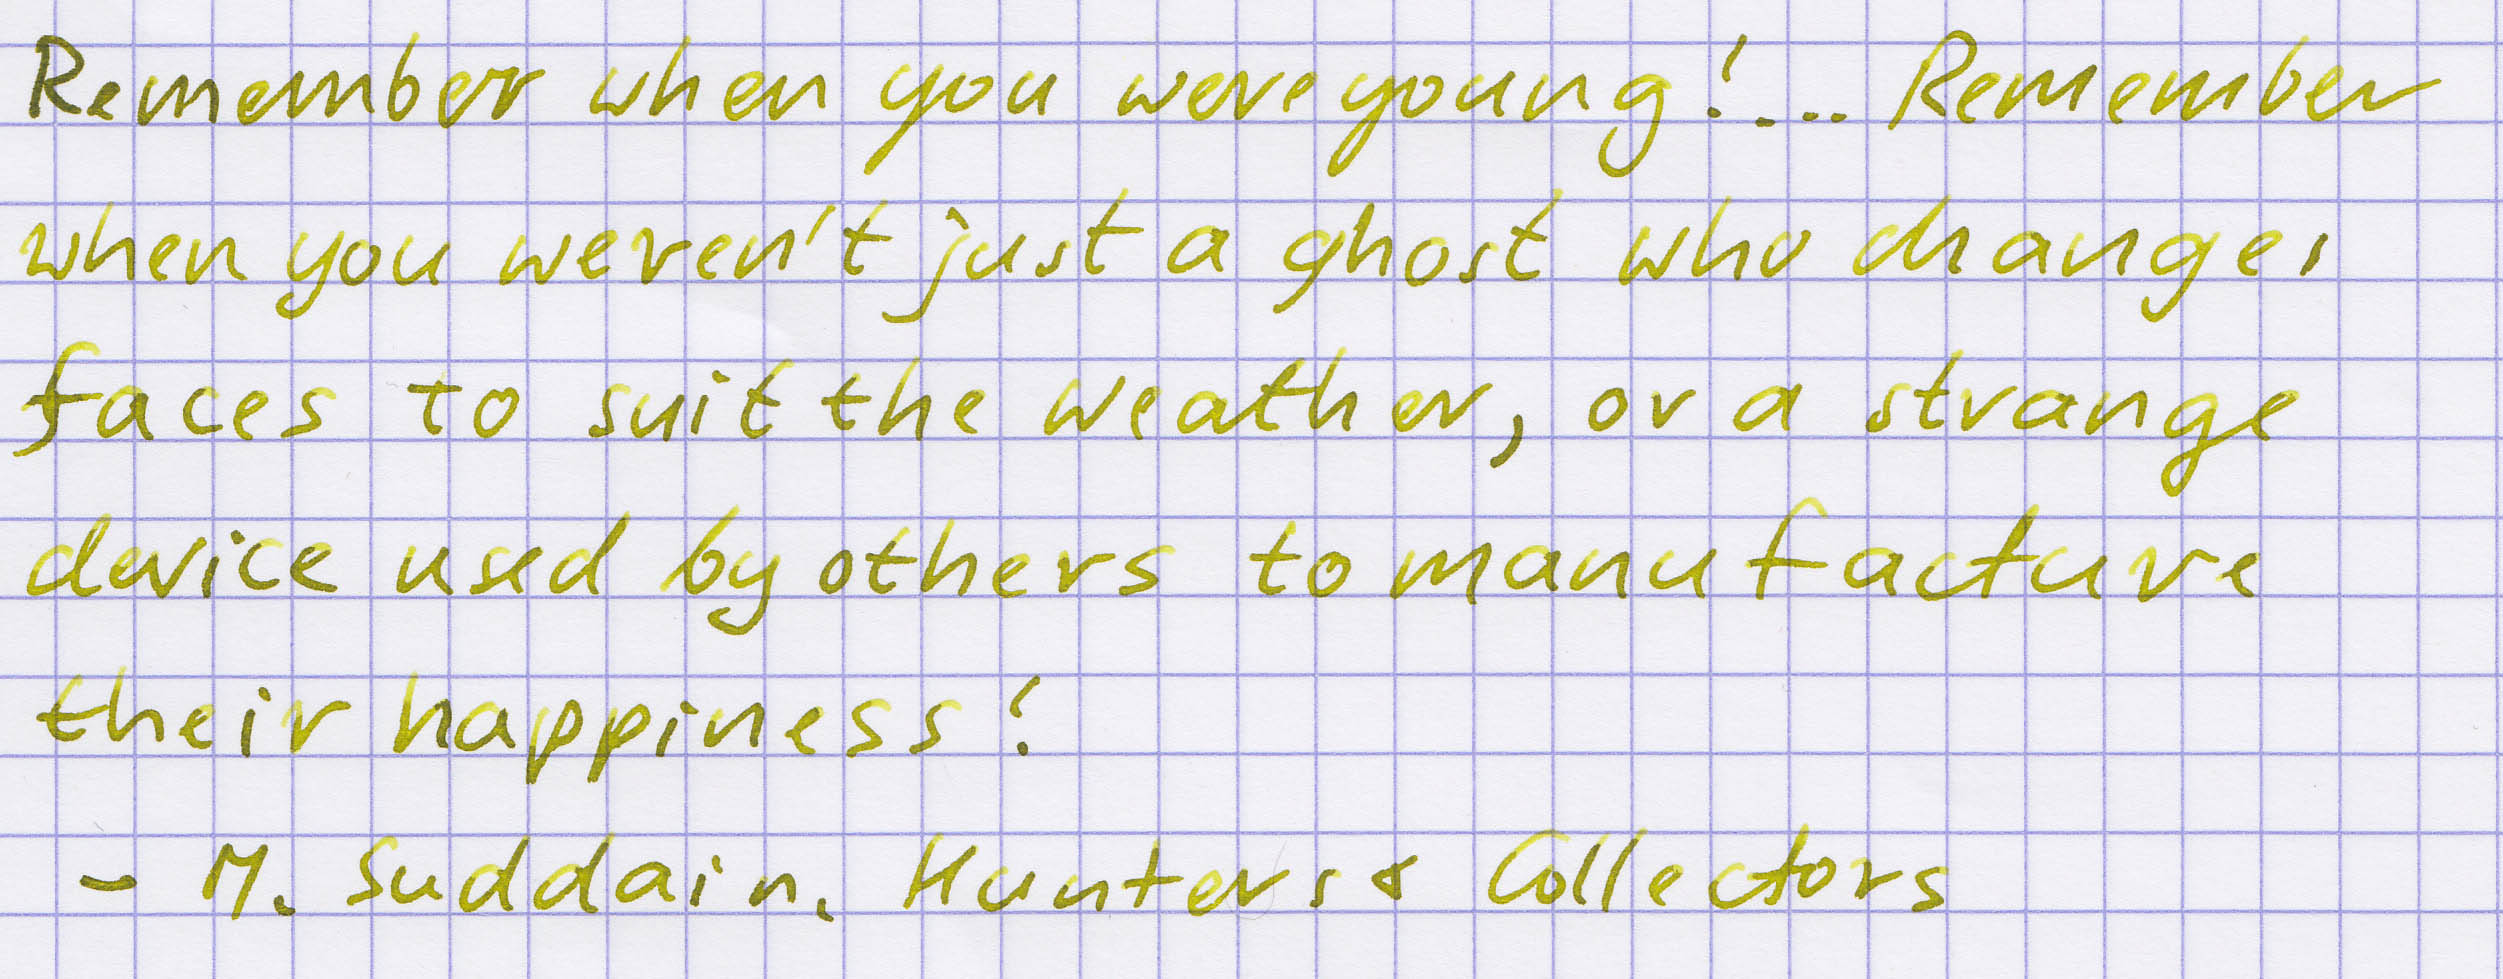 Remember when you were young! ... Remember
when you weren't just a ghost who changes
faces to suit the weather, or a strange
device used by others to manufacture
their happiness!
- M. Suddain, Hunters & Collectors